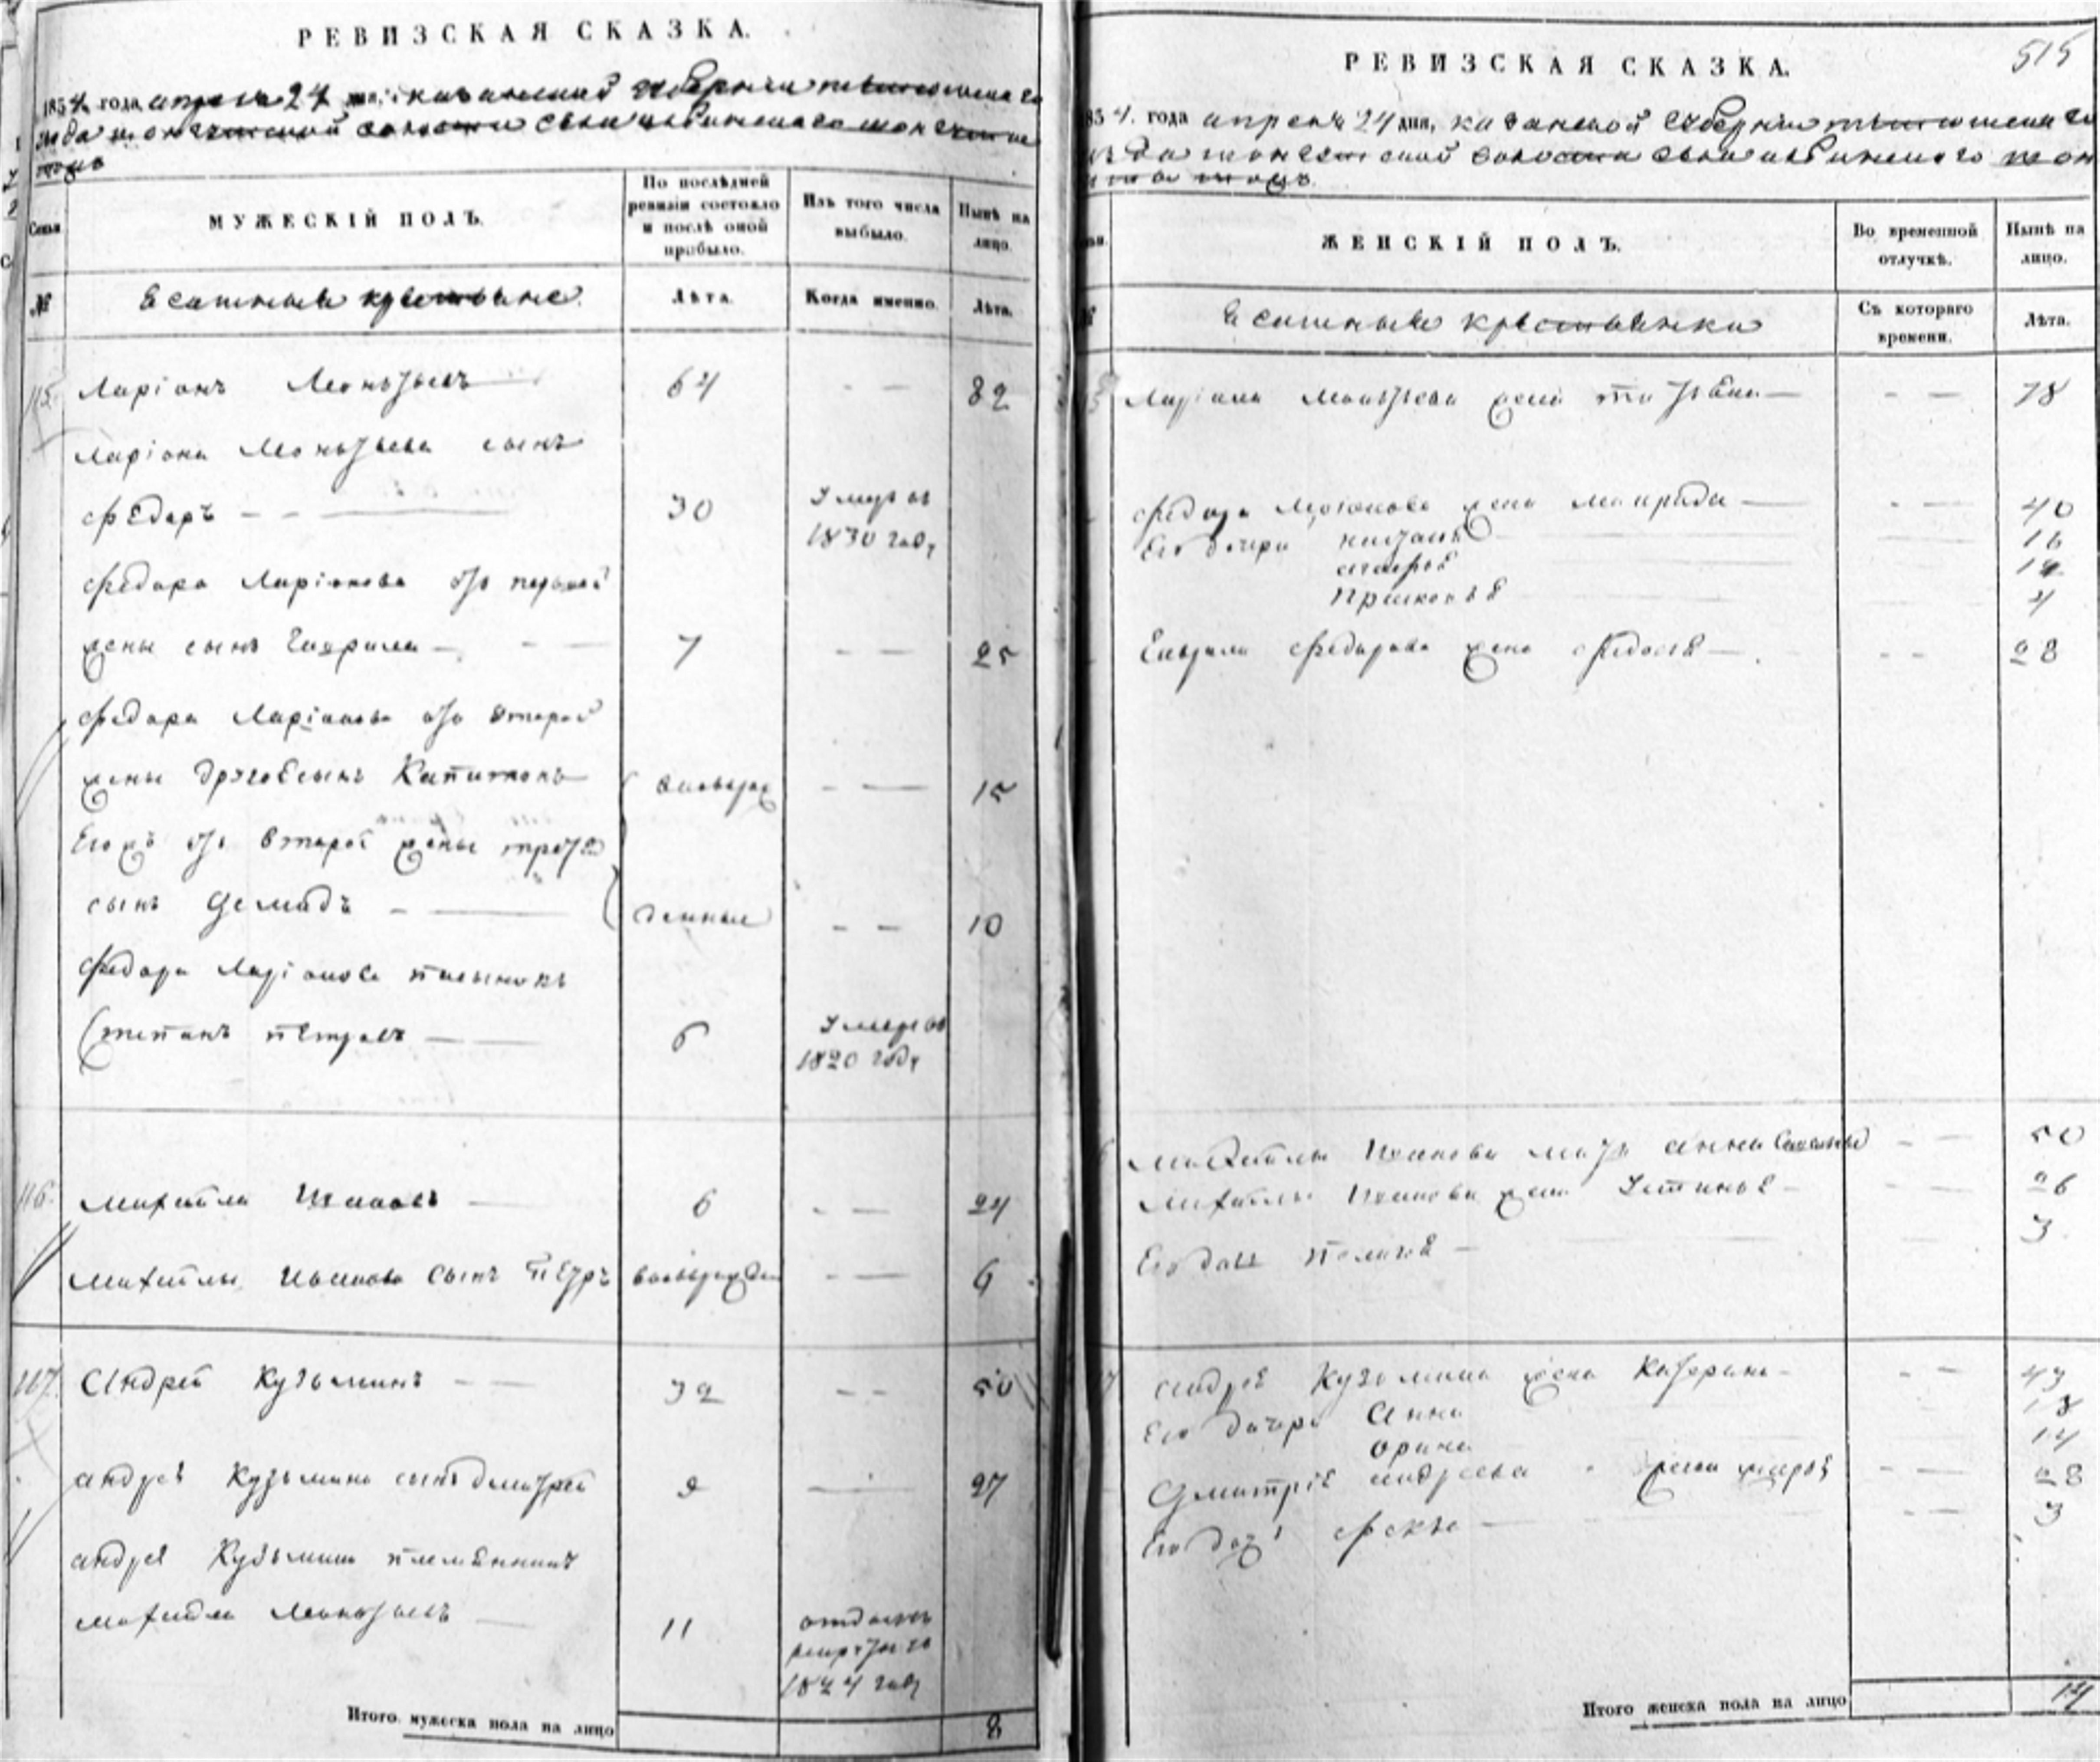 РЕВИЗСКАЯ СКАЗКА.
1834 года апреля 24 дня, казанской губернии
уезда волости села
МУЖЕСКІЙ ПОЛЪ.
По послѣдней ревизіи состояло и послѣ оной прибыло.
Изъ того числа выбыло.
Нынѣ на лицо.
Семьи
№
Ясашныя крестьяне.
Лѣта.
Когда именно.
Лѣта.
115. Ларіонъ Леонтьевъ 64 — — 82
Ларіона Леонтьева сынъ
Федоръ — — 30 Умеръ въ 1830 году
Федора Ларіонова отъ первой
жены сынъ Гаврила — 7 — — 25
Федора Ларіонова отъ второй
жены другой сынъ Капитонъ вновьрож — — 15
Его жъ отъ второй жены третей
сынъ Демидъ — денные — — 10
Федора Ларіонова пасынокъ
Степанъ Петровъ — 6 Умеръ въ 1820 году
116. Михаила Ивановъ — 6 — — 24
Михаилы Иванова сынъ Петръ вновьрожден — — 6
117. Андрей Кузьминъ — — 32 — — 50
Андрея Кузьмина сынъ Дмитрей 9 — 27
Андрея Кузьмина племянникъ
Михаила Леонтьевъ — 11 отданъ в рекруты въ 1824 году
Итого мужеска пола на лицо 8
515
РЕВИЗСКАЯ СКАЗКА.
1834. года апреля 24 дня, казанской губерніи
уезда волости села
ЖЕНСКІЙ ПОЛЪ.
Во временной отлучкѣ.
Нынѣ на лицо.
№
Ясашныя крестьянки
Съ котораго времени.
Лѣта.
Ларіона Леонтьева жена Татьяна — — — 78
Федора Ларіонова жена Макрида — — — 40
Его дочери Наталья 16
Марфа
Прасковья 4
Гаврила Федорова жена Федосья — — — 28
Михаилы Иванова мать Анна — — 50
Михаилы Иванова жена Устинья — — — 26
Его дочь Пелагея — 3
Андрея Кузьмина жена Катерина — — — 43
Его дочери Анна 18
Орина 14
Дмитрія Андреева жена Марья — — 28
Его дочь Фекла — 3
Итого женска пола на лицо 14